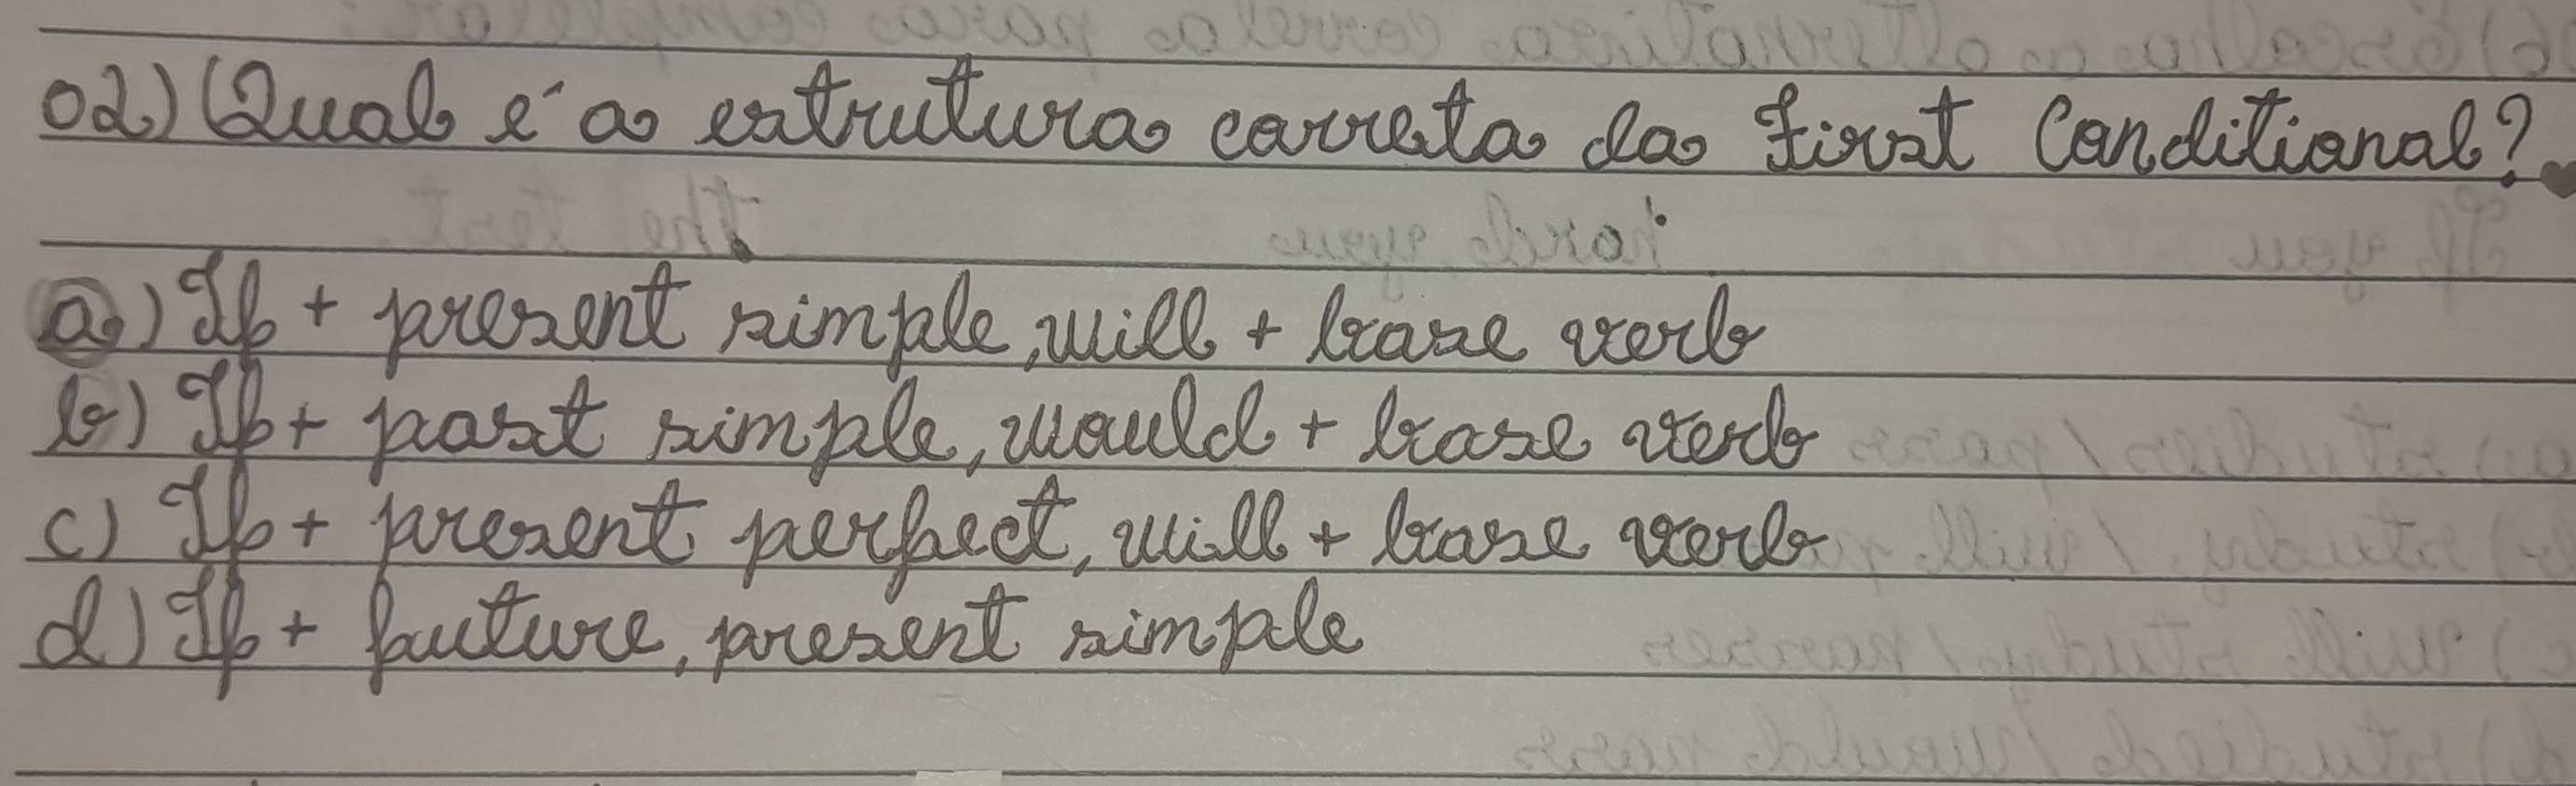 02) Qual é a estrutura correta da First Conditional?
a) If + present simple, will + base verb
b) If + past simple, would + base verb
c) If + present perfect, will + base verb
d) If + future, present simple